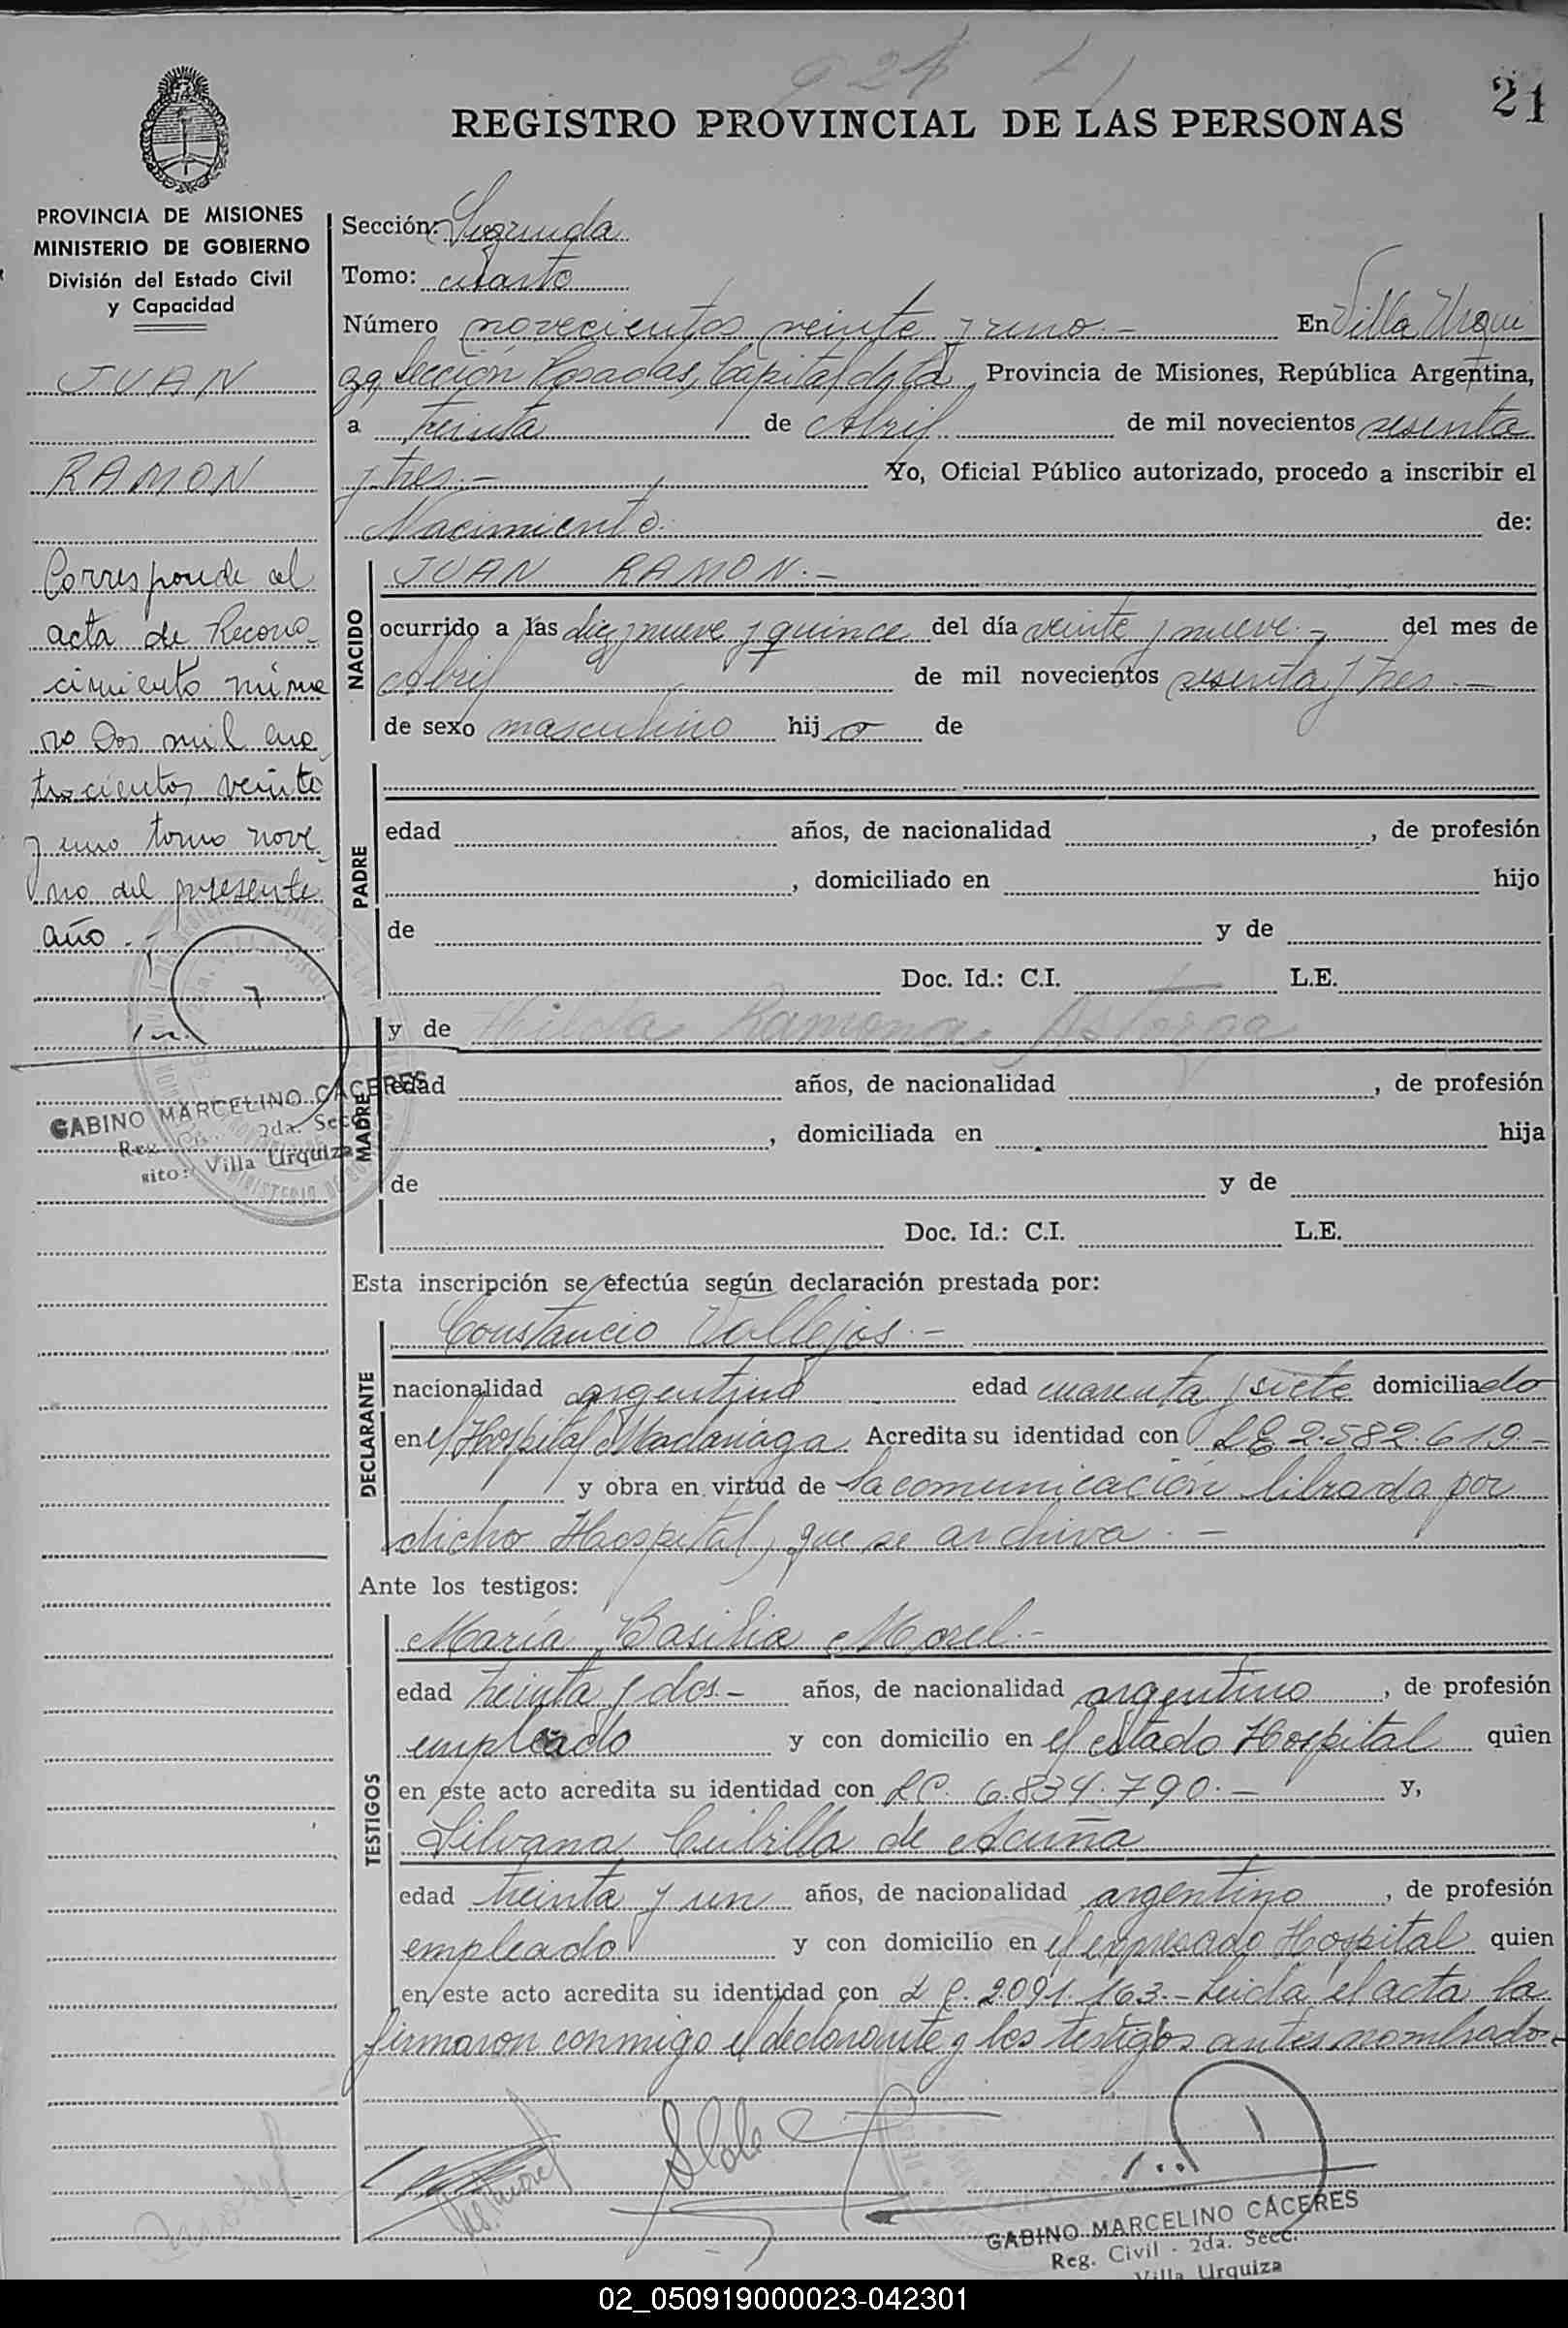 921
21
REGISTRO PROVINCIAL DE LAS PERSONAS
PROVINCIA DE MISIONES
MINISTERIO DE GOBIERNO
División del Estado Civil
y Capacidad
JUAN
RAMON
Corresponde al
acta de Recono-
cimiento núme
ro Dos mil cua
trocientos veinte
y uno tomo nove-
no del presente
año.-
GABINO MARCELINO CACERES
Reg. 2da. Secc.
sito: Villa Urquiza
Sección: Segunda
Tomo: cuarto
Número novecientos veinte y uno.- En Villa Urqui
za, Sección Posadas, Capital de la Provincia de Misiones, República Argentina,
a treinta de Abril de mil novecientos sesenta
y tres.- Yo, Oficial Público autorizado, procedo a inscribir el
Nacimiento. de:
NACIDO
JUAN RAMON.-
ocurrido a las diez y nueve y quince del día veinte y nueve.- del mes de
Abril de mil novecientos sesenta y tres.-
de sexo masculino hijo de
PADRE
edad años, de nacionalidad , de profesión
, domiciliado en hijo
de y de
Doc. Id.: C.I. L.E.
MADRE
y de Hilda Ramona Astorga
edad años, de nacionalidad , de profesión
, domiciliada en hija
de y de
Doc. Id.: C.I. L.E.
Esta inscripción se efectúa según declaración prestada por:
DECLARANTE
Constancio Vallejos.-
nacionalidad argentino edad cuarenta y siete domiciliado
en el Hospital Madariaga. Acredita su identidad con LE 2.582.619.-
y obra en virtud de la comunicación librada por
dicho Hospital, que se archiva.-
Ante los testigos:
TESTIGOS
María Basilia Morel.-
edad treinta y dos.- años, de nacionalidad argentino , de profesión
empleado y con domicilio en el citado Hospital quien
en este acto acredita su identidad con LC. 6.834.790.- y,
Silvana Cubilla de Acuña
edad treinta y un años, de nacionalidad argentino , de profesión
empleado y con domicilio en el expresado Hospital quien
en este acto acredita su identidad con L C. 2.091.163.- Leida el acta la
firmaron conmigo el declarante y los testigos antes nombrados.-
GABINO MARCELINO CACERES
Reg. Civil - 2da. Secc.
Villa Urquiza
02_050919000023-042301